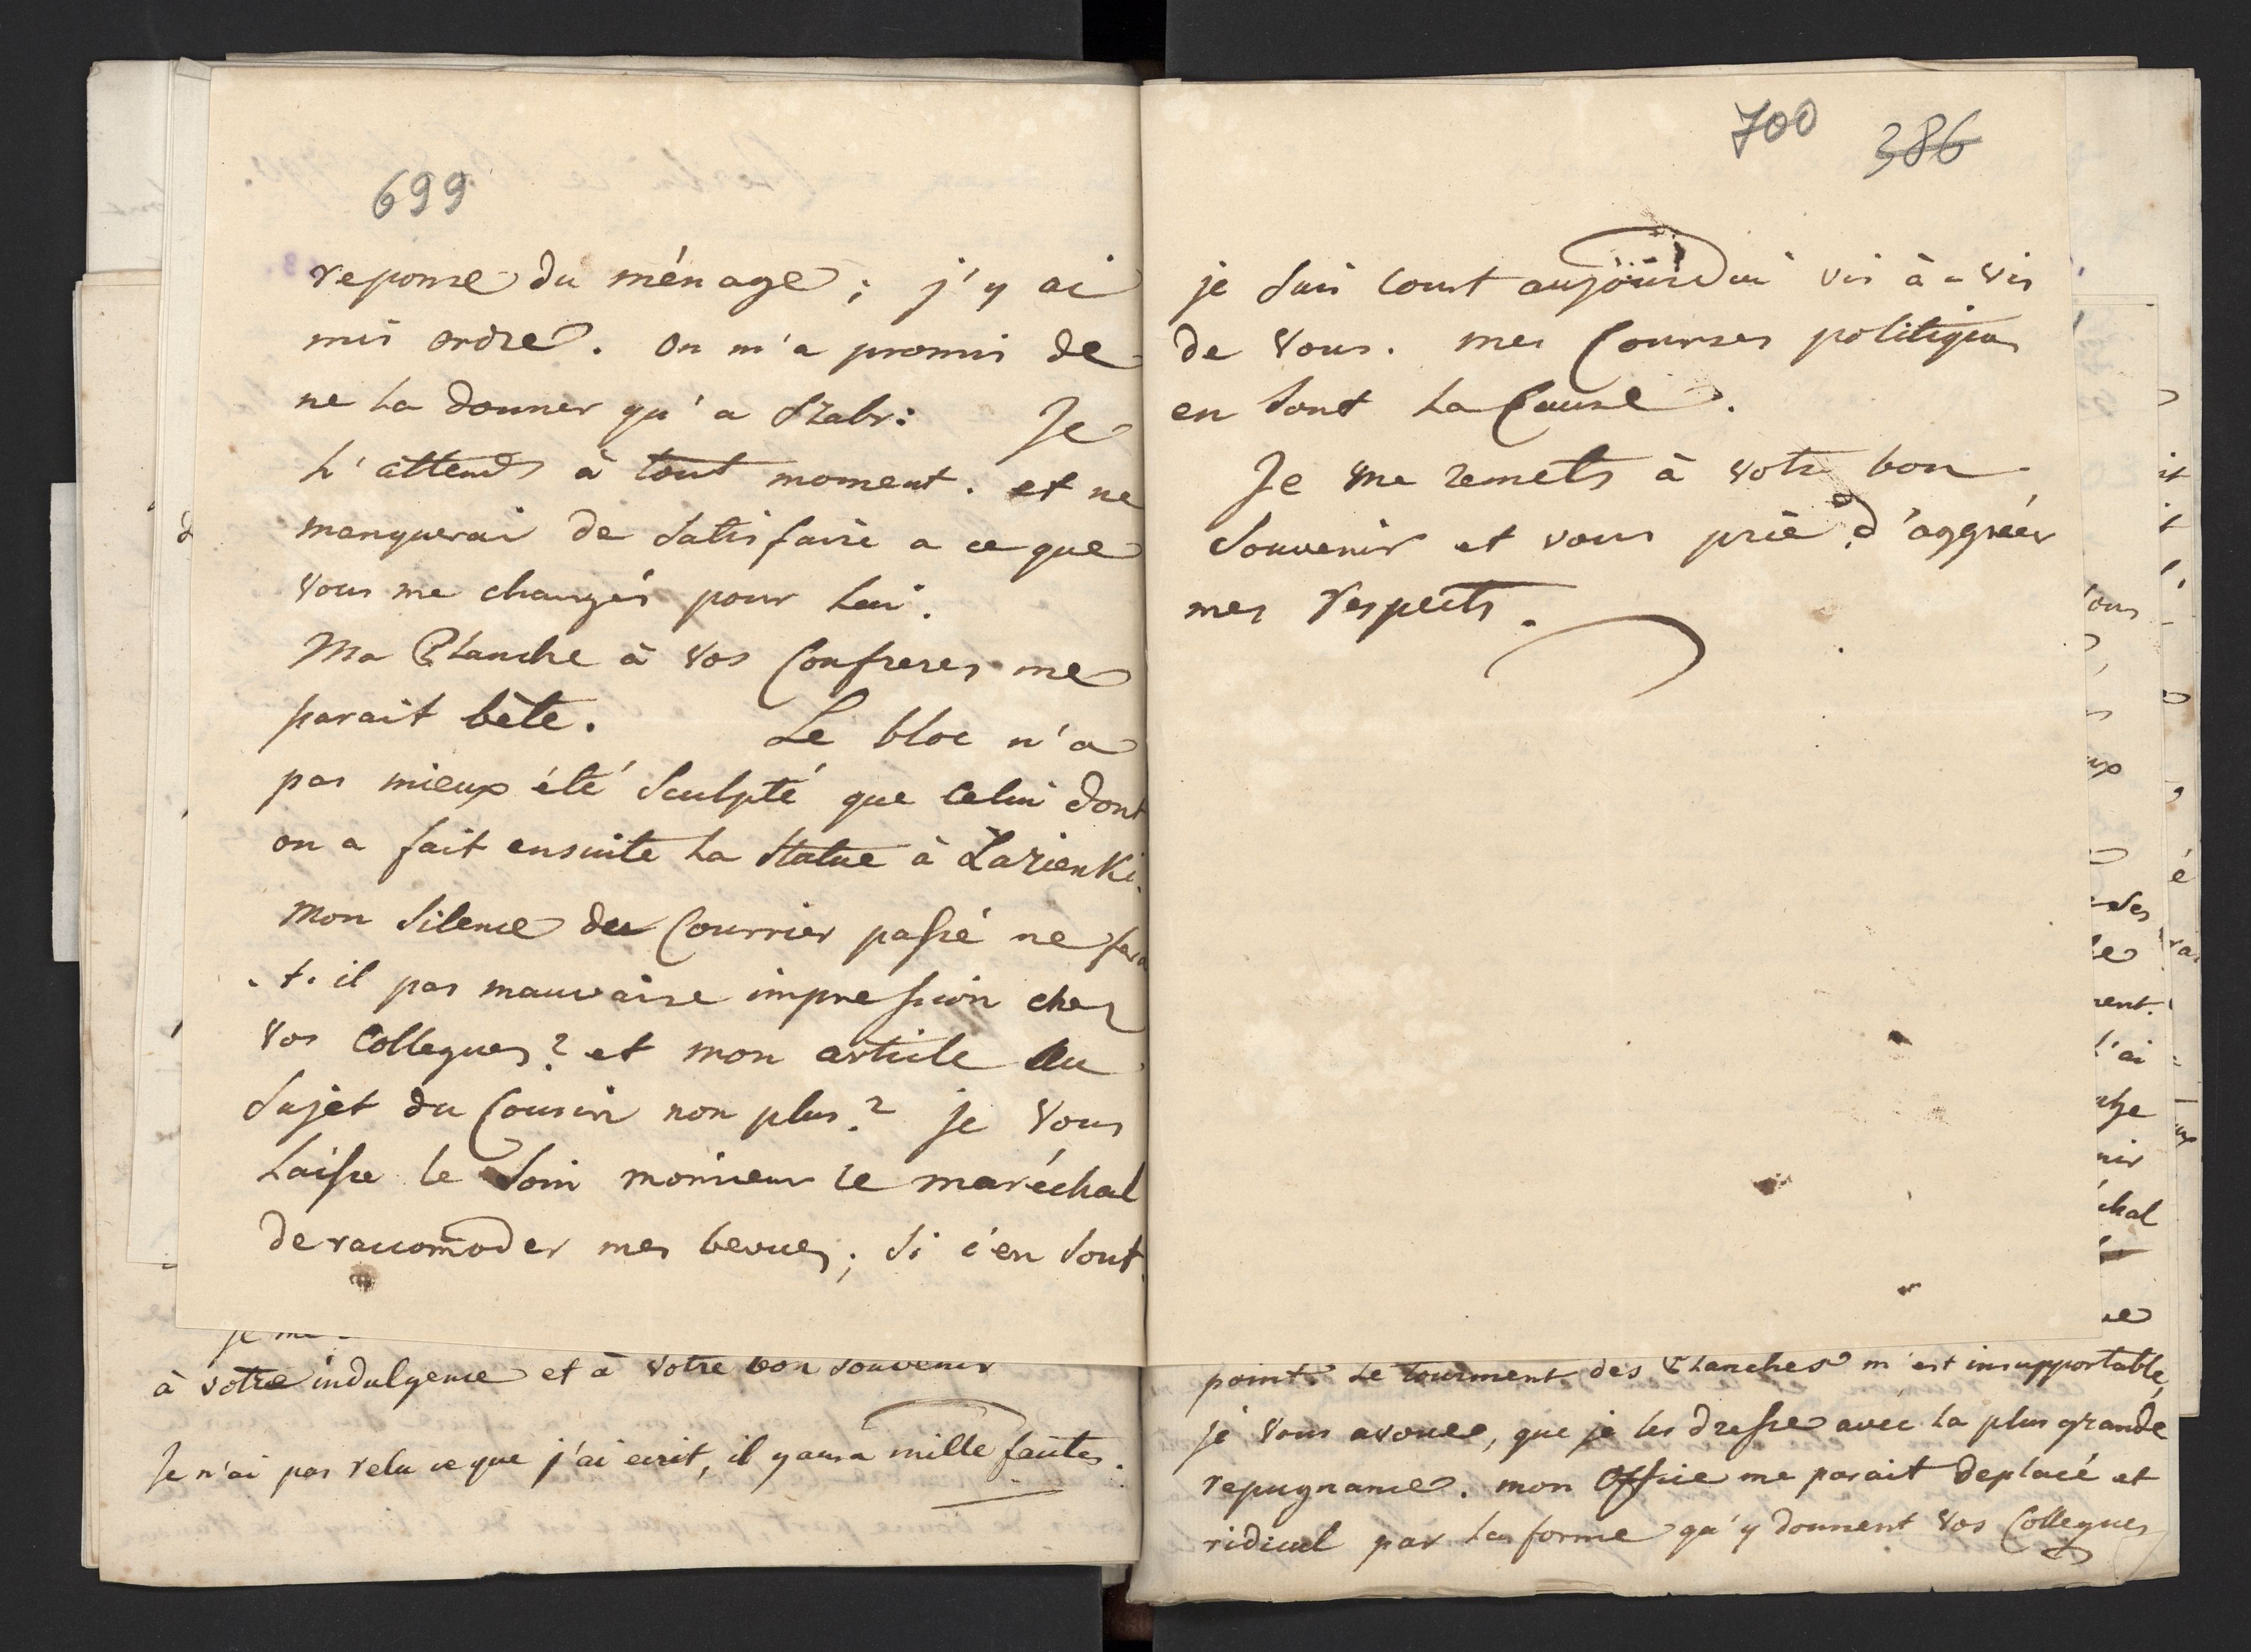 699
reponse du ménage ; j'y ai
mis ordre. On m'a promis de
ne la donner qu'a Szabr: Je
l'attends à tout moment. et ne
manquerai de satisfaire a ce que
vous me chargés pour lui.
Ma Planche à vos Confreres me
parait bête. Le bloc n'a
pas mieux été sculpté que celui dont
on a fait ensuite la statue à Łazienki.
Mon silence du Courrier passé ne fera
-t-il pas mauvaise impression chez
vos Collegues ? et mon article au
sujèt du Cousin non plus ? je vous
laisse le soin monsieur le maréchal
de raccomoder mes bevues ; si c'en sont.
à votre indulgence et à votre bon souvenir
Je n'ai pas relu ce que j'ai ecrit, il y aura mille fautes.
700 386
je suis court aujourdui vis à-vis
de vous. mes Courses politiques
en sont la Cause.
Je me remets à votre bon
souvenir et vous prie d'aggréer
mes respects.
point. le tourment des Planches m'est insupportable,
je vous avoue, que je les dresse avec la plus grande
repugnance. mon Office me parait deplacé et
ridicul par la forme qu'y donnent vos Collegues